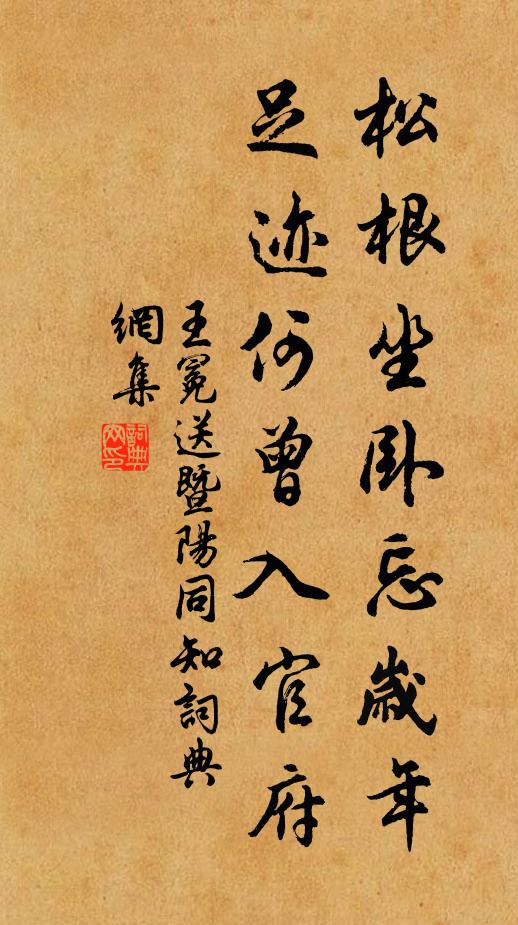 松根坐卧忘歲年
足迹何曾入官府
王冕送暨陽同知詞典
網集
詞典
网印